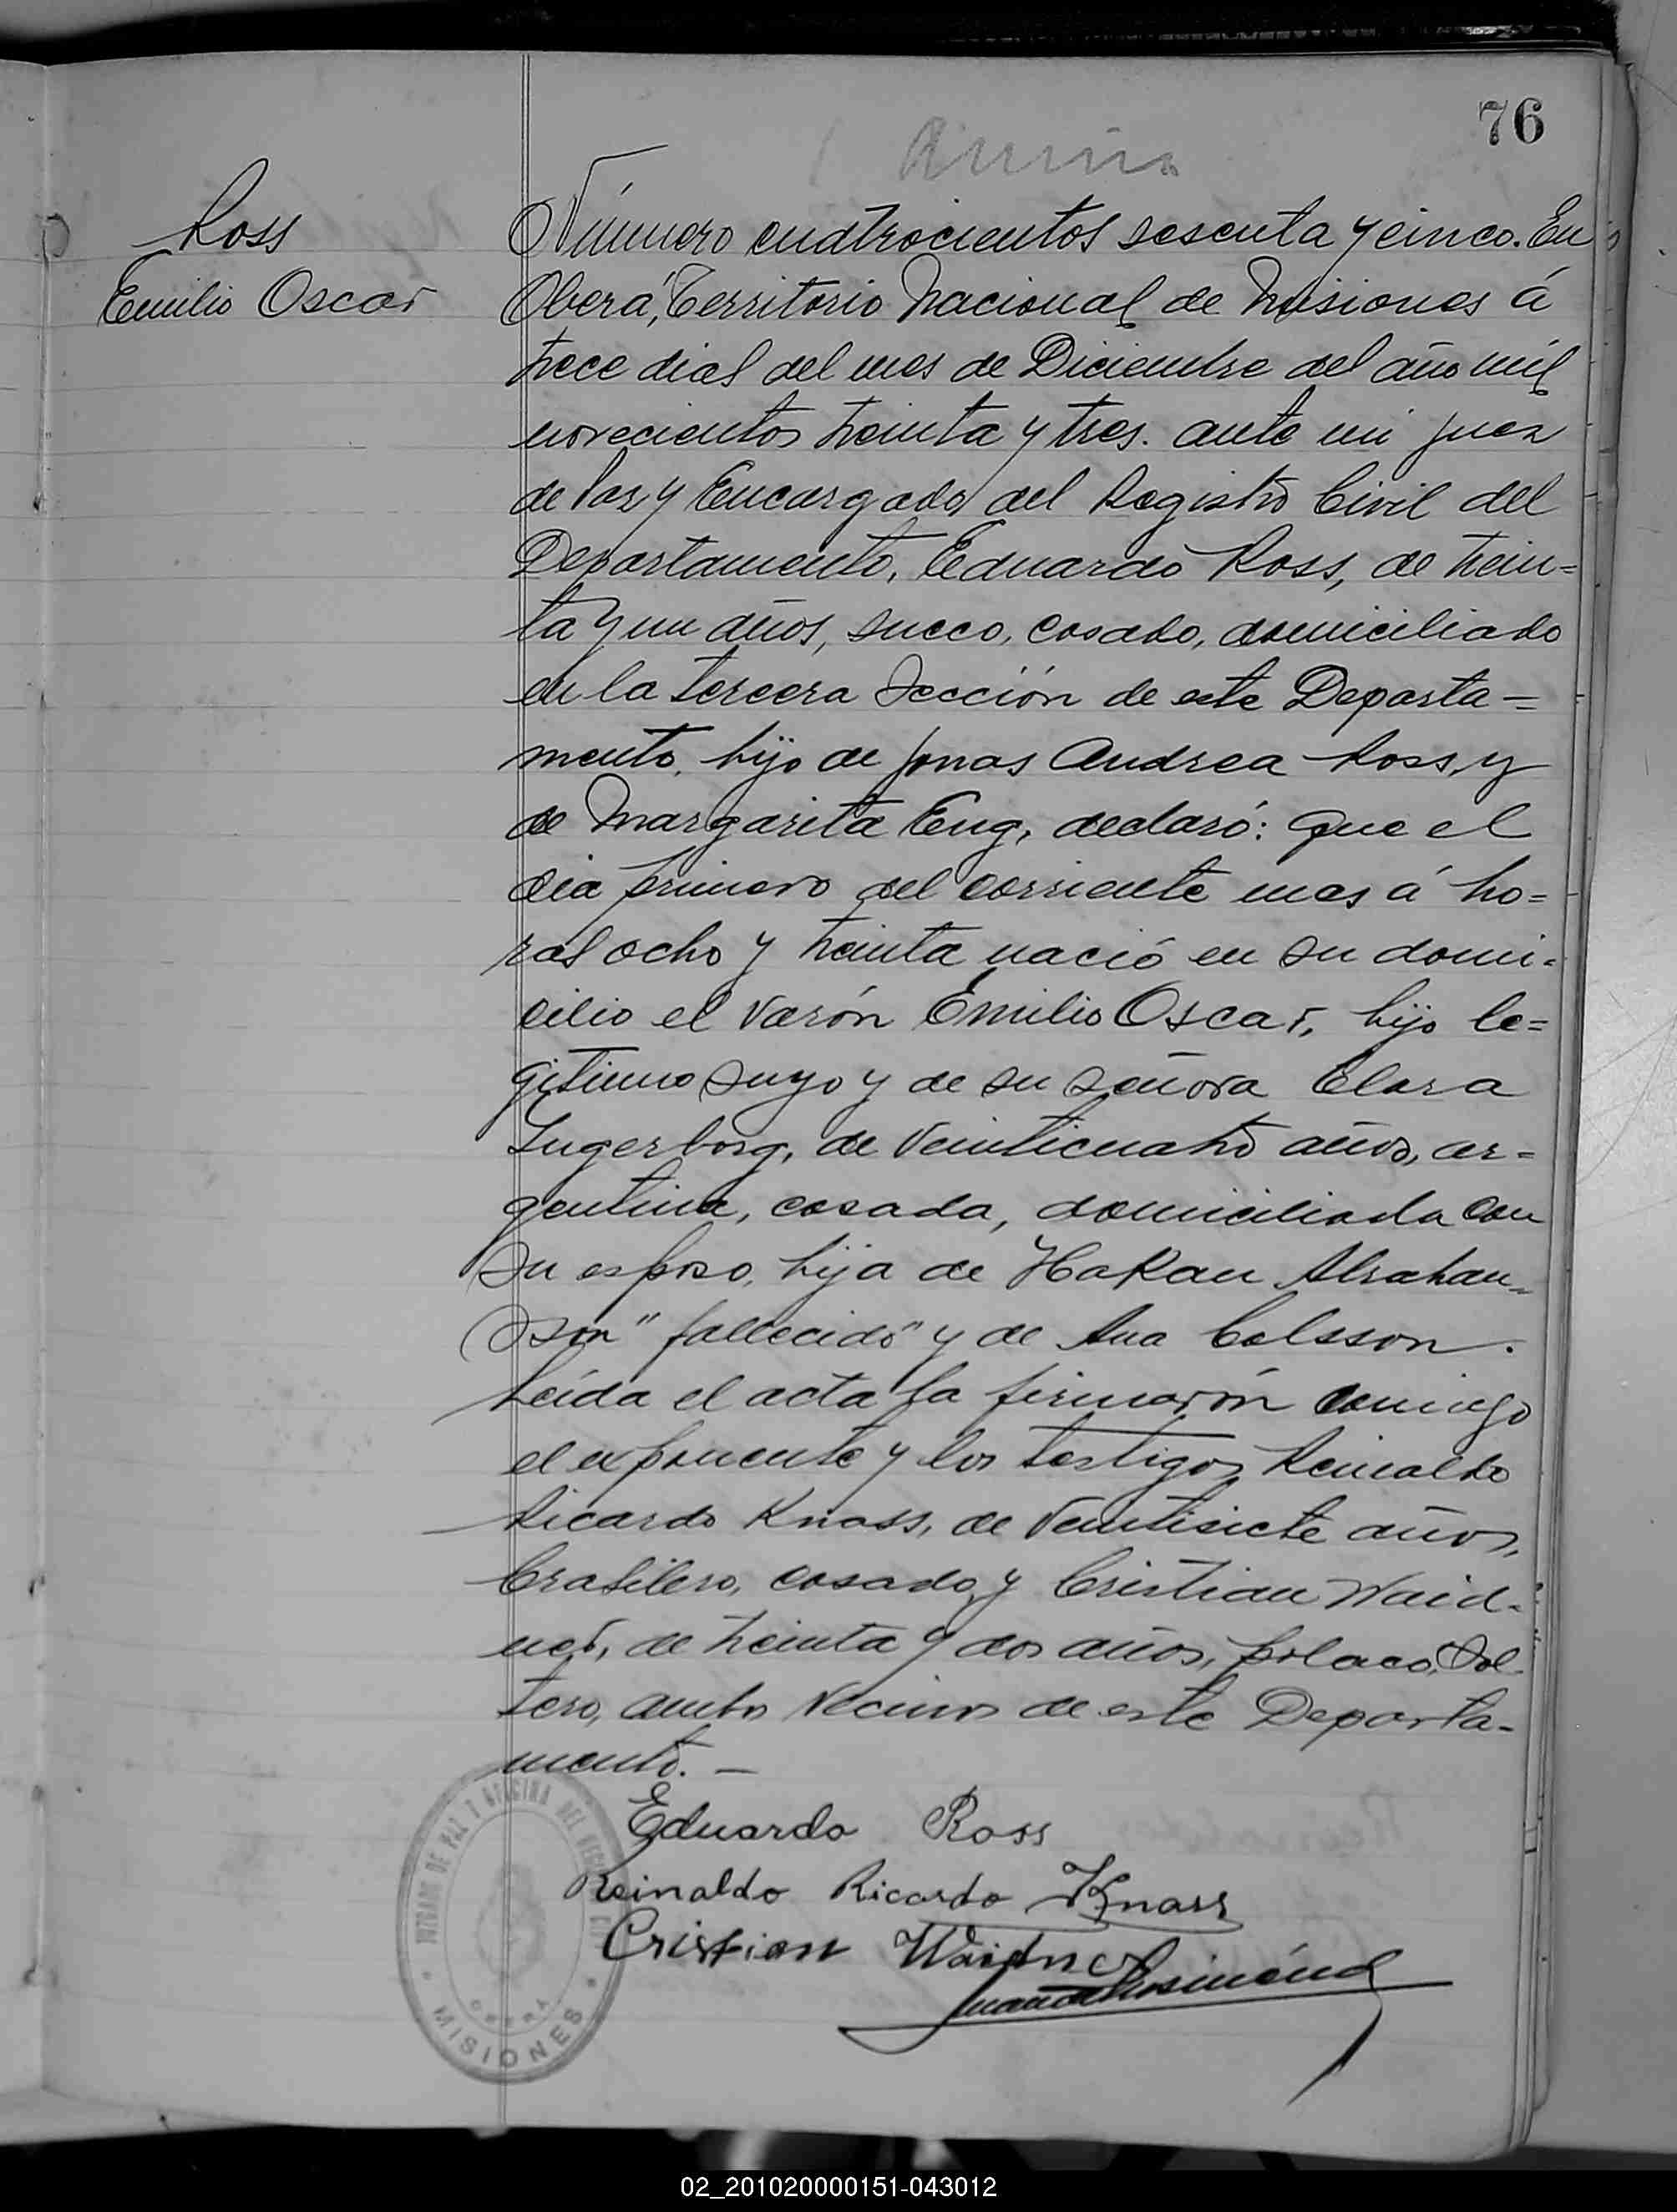 76
Ross
Emilio Oscar
Número cuatrocientos sesenta y cinco. En
Oberá, Territorio Nacional de Misiones á
trece dias del mes de Diciembre del año mil
novecientos treinta y tres. ante mi Juez
de Paz y Encargado del Registro Civil del
Departamento, Eduardo Ross, de trein=
ta y un años, sueco, casado, domiciliado
en la tercera Sección de este Departa=
mento, hijo de Jonas Andrea Ross, y
de Margarita Eng, declaró: Que el
dia primero del corriente mes á ho=
ras ocho y treinta nació en su domi-
cilio el varón Emilio Oscar, hijo le=
gitimo suyo y de su señora Clara
Ingerborg, de veinticuatro años, ar=
gentina, casada, domiciliada con
su esposo, hija de Hakan Abrahan=
son "fallecido" y de Ana Colsson.
Leída el acta la firmarón conmigo
el exponente y los testigos Reinaldo
Ricardo Knass, de veintisiete años,
brasilero, casado, y Cristian Waid-
ner, de treinta y dos años, polaco, Sol
tero, ambos vecinos de este Departa-
mento. —
Eduardo Ross
Reinaldo Ricardo Knass
Cristian Waidner
JUZGADO DE PAZ Y OFICINA DEL
OBERA
MISIONES
02_201020000151-043012